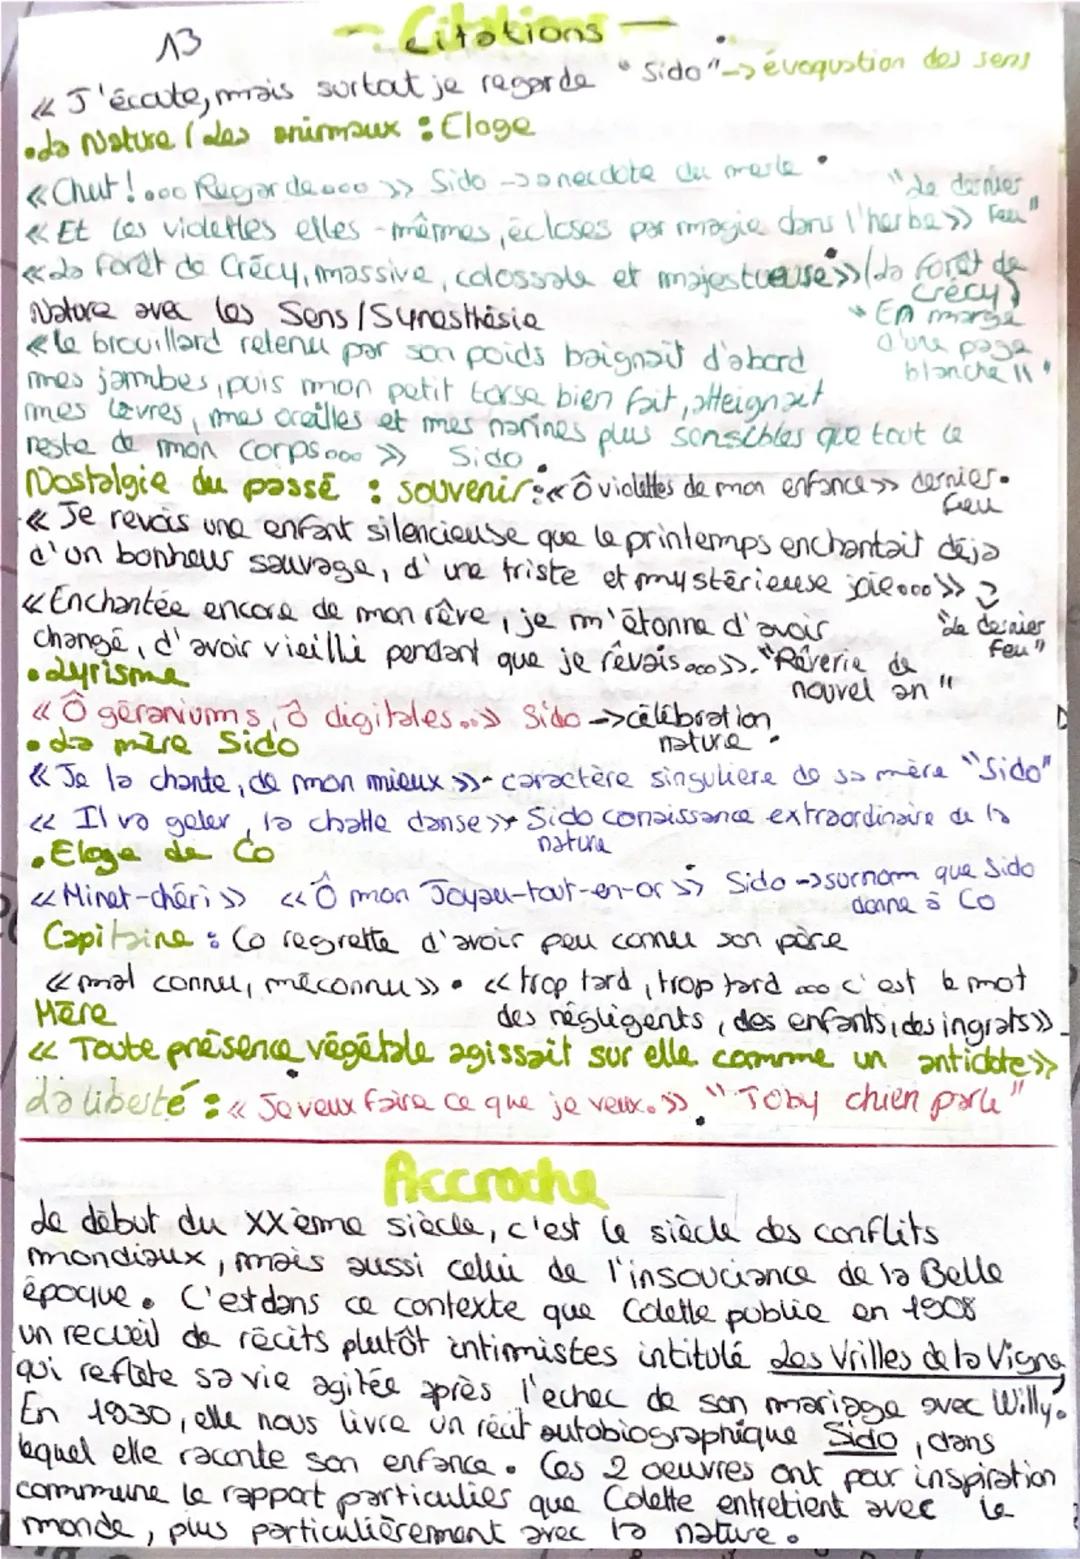 13
- Citations -
« J'écoute, mais surtout je regarde "Sido" -> évoquation des sens
• La Nature / Les animaux : Eloge
« Chut !... Regarde... » Sido -> anecdote du merle
« Et les violettes elles-mêmes, écloses par magie dans l'herbe » "Le dernier Feu"
« La forêt de Crécy, massive, colossale et majestueuse » (La Forêt de Crécy)
Nature avec les Sens / Synesthésie
"En marge d'une page blanche II"
« le brouillard retenu par son poids baignait d'abord
mes jambes, puis mon petit torse bien fait, atteignait
mes lèvres, mes oreilles et mes narines plus sensibles que tout le
reste de mon corps... » Sido
Nostalgie du passé : souvenir : « Ô violettes de mon enfance » dernier feu
« Je revois une enfant silencieuse que le printemps enchantait déjà
d'un bonheur sauvage, d'une triste et mystérieuse joie... »
"Le dernier Feu"
« Enchantée encore de mon rêve, je m'étonne d'avoir
changé, d'avoir vieilli pendant que je rêvais... ». "Rêverie de nouvel an"
• Lyrisme
« Ô géraniums, ô digitales... » Sido -> célébration nature
• La mère Sido
« Je la chante, de mon mieux » - caractère singulière de sa mère "Sido"
« Il va geler, la chatte danse » Sido connaissance extraordinaire de la nature
• Eloge de Co
« Minet-chéri » « Ô mon Joyau-tout-en-or » Sido -> surnom que Sido donne à Co
Capitaine : Co regrette d'avoir peu connu son père
« mal connu, méconnu » • « trop tard, trop tard ... c'est le mot
des négligents, des enfants, des ingrats »
Mère
« Toute présence végétale agissait sur elle comme un antidote »
La liberté : « Je veux faire ce que je veux. » "Toby chien parle"
Accroche
Le début du XXème siècle, c'est le siècle des conflits
mondiaux, mais aussi celui de l'insouciance de la Belle
époque. C'est dans ce contexte que Colette publie en 1908
un recueil de récits plutôt intimistes intitulé Les Vrilles de la Vigne,
qui reflète sa vie agitée après l'echec de son mariage avec Willy.
En 1930, elle nous livre un récit autobiographique Sido, dans
lequel elle raconte son enfance. Ces 2 oeuvres ont pour inspiration
commune le rapport particulier que Colette entretient avec le
monde, plus particulièrement avec la nature.